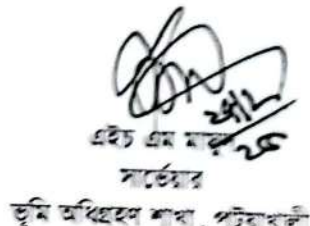 ২৭/২
২৫
এইচ এম মামুন
সার্ভেয়ার
ভূমি অধিগ্রহণ শাখা, পটুয়াখালী